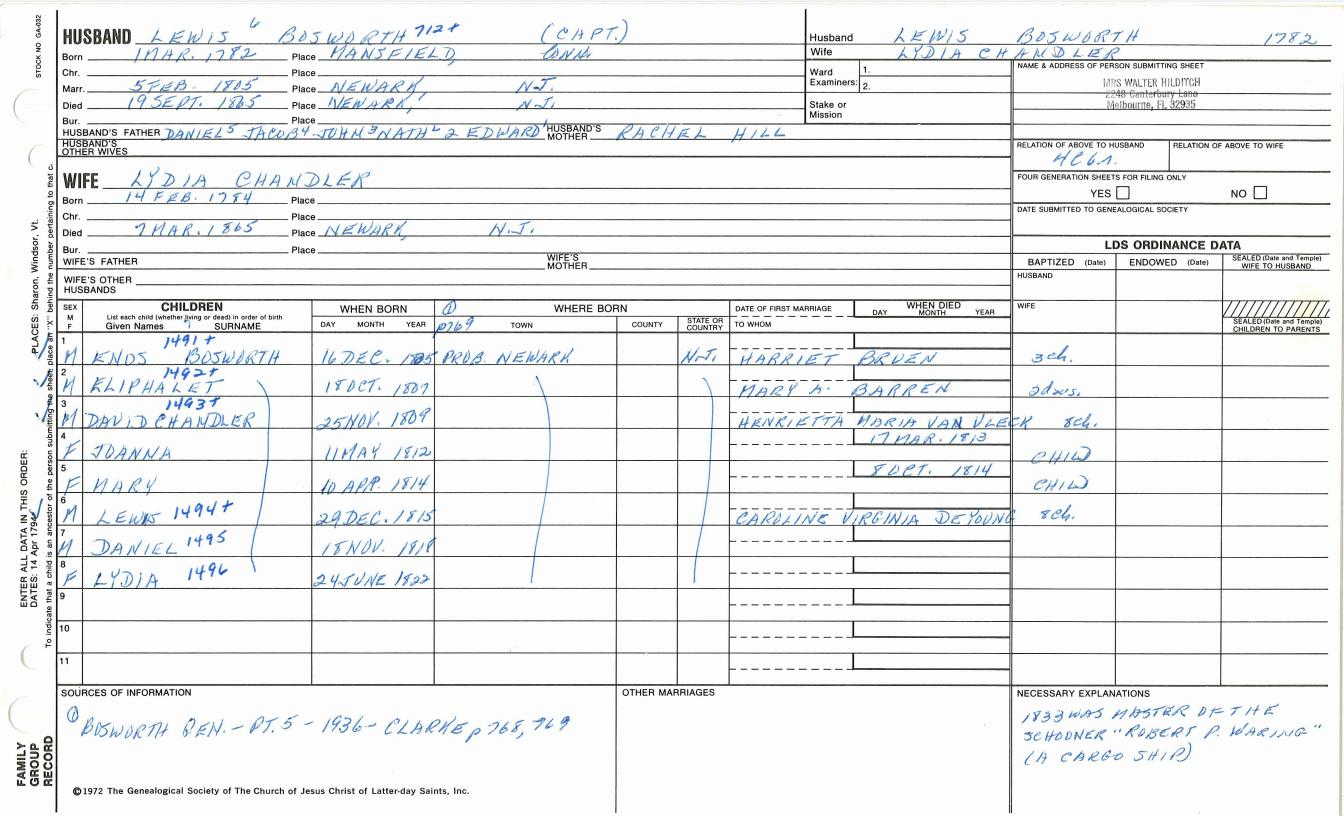 STOCK NO GA-032
HUSBAND LEWIS 6 BOSWORTH 712+ (CAPT.)
Born 1 MAR. 1782 Place MANSFIELD, CONN.
Chr. Place
Marr. 5 FEB. 1805 Place NEWARK, N.J.
Died 19 SEPT. 1865 Place NEWARK, N.J.
Bur. Place
HUSBAND'S FATHER DANIEL5 JACOB4 JOHN3 NATHL2 EDWARD1 HUSBAND'S MOTHER RACHEL HILL
HUSBAND'S OTHER WIVES
WIFE LYDIA CHANDLER
Born 14 FEB. 1784 Place
Chr. Place
Died 7 MAR. 1865 Place NEWARK, N.J.
Bur. Place
WIFE'S FATHER WIFE'S MOTHER
WIFE'S OTHER HUSBANDS
Husband LEWIS BOSWORTH 1782
Wife LYDIA CHANDLER
Ward Examiners: 1. 2.
Stake or Mission
NAME & ADDRESS OF PERSON SUBMITTING SHEET
MRS WALTER HILDITCH
2248 Canterbury Lane
Melbourne, FL 32935
RELATION OF ABOVE TO HUSBAND RELATION OF ABOVE TO WIFE
4C6r.
FOUR GENERATION SHEETS FOR FILING ONLY
YES NO
DATE SUBMITTED TO GENEALOGICAL SOCIETY
LDS ORDINANCE DATA
BAPTIZED (Date) ENDOWED (Date) SEALED (Date and Temple) WIFE TO HUSBAND
HUSBAND
WIFE
SEALED (Date and Temple) CHILDREN TO PARENTS
SEX M F
CHILDREN
List each child (whether living or dead) in order of birth
Given Names 7 SURNAME
WHEN BORN
DAY MONTH YEAR
① p769
WHERE BORN
TOWN COUNTY STATE OR COUNTRY
DATE OF FIRST MARRIAGE
TO WHOM
WHEN DIED
DAY MONTH YEAR
1 M 1491+ ENOS BOSWORTH 16 DEC. 1805 PROB. NEWARK N.J. HARRIET BRUEN 3ch.
2 M 1492+ ELIPHALET 18 OCT. 1807 MARY A. BARREN 2daus.
3 M 1493+ DAVID CHANDLER 25 NOV. 1809 HENRIETTA MARIA VAN VLECK 8ch.
4 F JOANNA 11 MAY 1812 17 MAR. 1813 CHILD
5 F MARY 10 APR. 1814 8 OCT. 1814 CHILD
6 M LEWIS 1494+ 29 DEC. 1815 CAROLINE VIRGINIA DEYOUNG 8ch.
7 M DANIEL 1495 18 NOV. 1818
8 F LYDIA 1496 24 JUNE 1822
9
10
11
SOURCES OF INFORMATION
① BOSWORTH GEN. - PT. 5 - 1936 - CLARKE p768, 769
OTHER MARRIAGES
NECESSARY EXPLANATIONS
1833 WAS MASTER OF THE
SCHOONER "ROBERT P. WARING"
(A CARGO SHIP)
©1972 The Genealogical Society of The Church of Jesus Christ of Latter-day Saints, Inc.
FAMILY GROUP RECORD
ENTER ALL DATA IN THIS ORDER:
DATES: 14 Apr 1794 PLACES: Sharon, Windsor, Vt.
To indicate that a child is an ancestor of the person submitting the sheet, place an "X" behind the number pertaining to that c